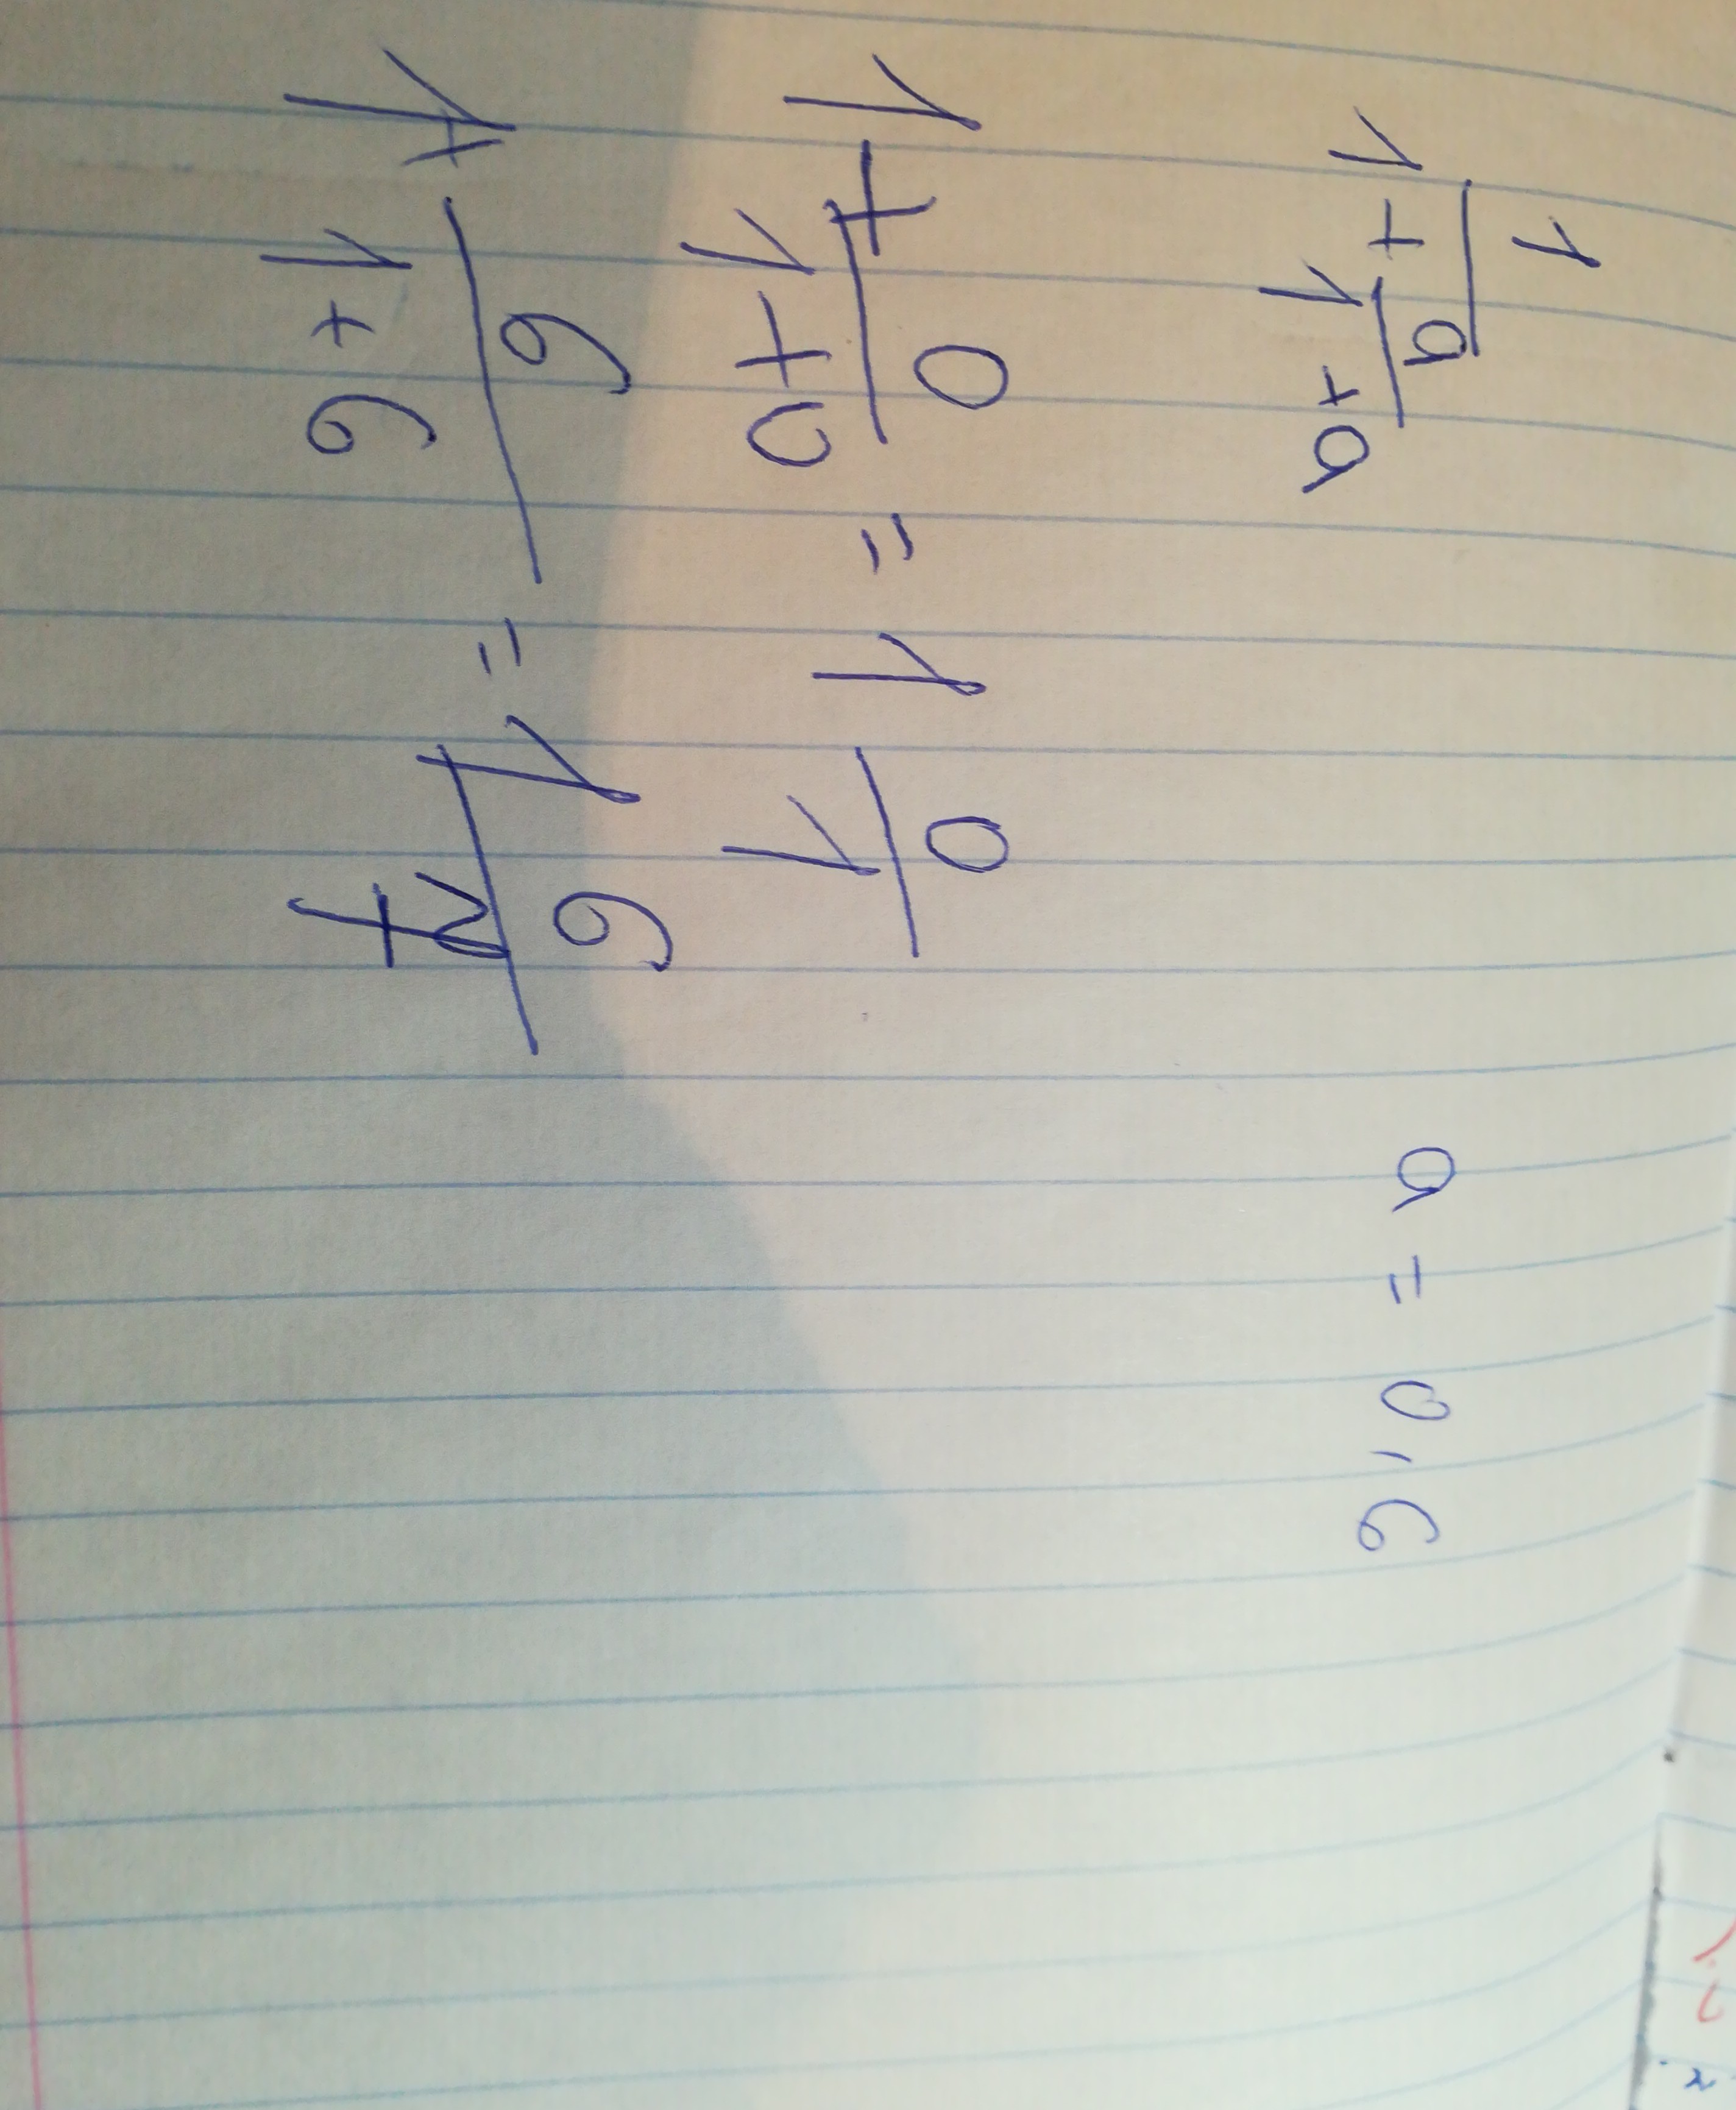 1
1 + a/(1 + a)   a = 0, 6
1 + 0/(1 + 0) = 1 0/1
1 + 6/(1 + 6) = 1 6/7